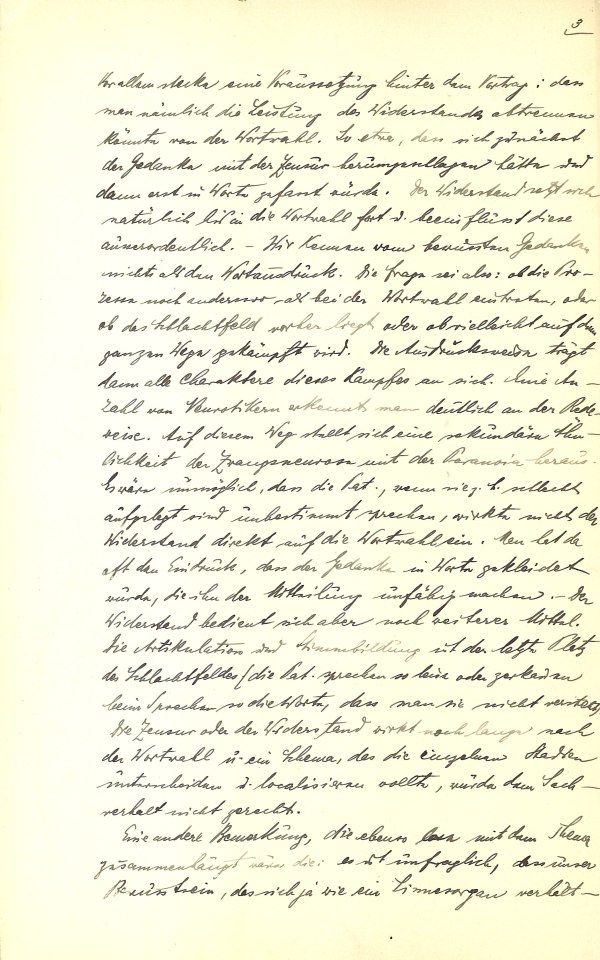 3
Vor allem stecke eine Voraussetzung hinter dem Vortrag: dass
man nämlich die Leistung des Widerstandes abtrennen
könnte von der Wortwahl. So etwa, dass sich zunächst
der Gedanke mit der Zensur herumgeschlagen hätte und
dann erst in Worte gefasst würde. Der Widerstand setzt sich
natürlich bis in die Wortwahl fort u. beeinflusst diese
ausserordentlich. – Wir kennen vom bewussten Gedanken
nichts als den Wortausdruck. Die Frage sei also: ob die Pro-
zesse noch anderswo als bei der Wortwahl eintreten, oder
ob das Schlachtfeld vorher liegt oder ob vielleicht auf dem
ganzen Wege gekämpft wird. Die Ausdrucksweise trägt
dann alle Charaktere dieses Kampfes an sich. Eine An-
zahl von Neurotikern erkennt man deutlich an der Rede-
weise. Auf diesem Weg stellt sich eine sekundäre Ähn-
lichkeit der Zwangsneurose mit der Paranoia heraus.
Es wäre unmöglich, dass die Pat., wenn sie z. B. schlecht
aufgelegt sind unbestimmt sprechen, wirkte nicht der
Widerstand direkt auf die Wortwahl ein. Man hat da
oft den Eindruck, dass der Gedanke in Worte gekleidet
würde, die ihn der Mitteilung unfähig machen. – Der
Widerstand bedient sich aber noch weiterer Mittel.
Die Artikulation und Stimmbildung ist der letzte Platz
des Schlachtfeldes (die Pat. sprechen so leise oder zerkauen
beim Sprechen so die Worte, dass man sie nicht versteht).
Die Zensur oder der Widerstand wirkt noch lange nach
der Wortwahl u. ein Schema, das die einzelnen Stadien
unterscheiden u. localisieren wollte, würde dem Sach-
verhalt nicht gerecht.
Eine andere Bemerkung, die ebenso lose mit dem Thema
zusammenhängt wäre die: es ist unfraglich, dass unser
Bewusstsein, das sich ja wie ein Sinnesorgan verhält –